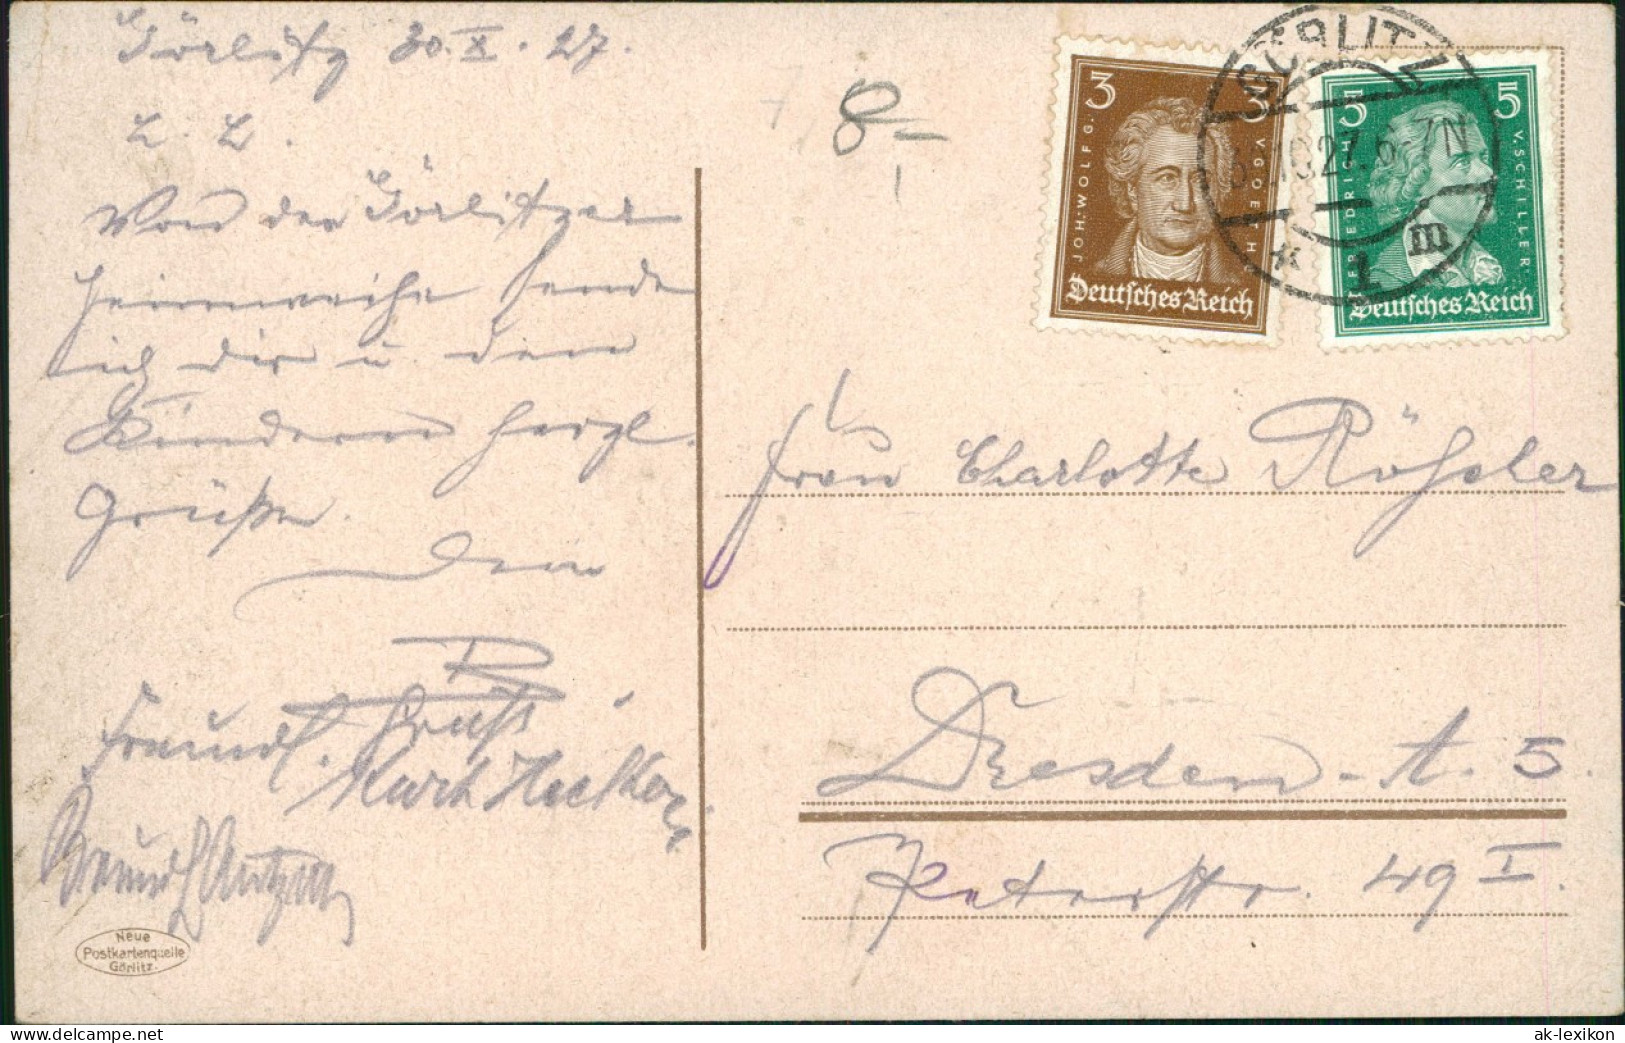 Görlitz 30.X.27.
L. L.
Von der Görlitzer
Heimweihe sende
ich dir u. den
Kindern herzl.
Grüße.
Dein
R
Freundl. Gruß
Kurt
Neue
Postkartenquelle
Görlitz.
8-
3 3
JOH: WOLFG. V. GOETHE
Deutsches Reich
5 5
FRIEDRICH V. SCHILLER
Deutsches Reich
GÖRLITZ
.10.27. 6-7N
* 1 m
Frau Charlotte Rößler
Dresden-A. 5.
Peterstr. 49 I.
www.delcampe.net
ak-lexikon